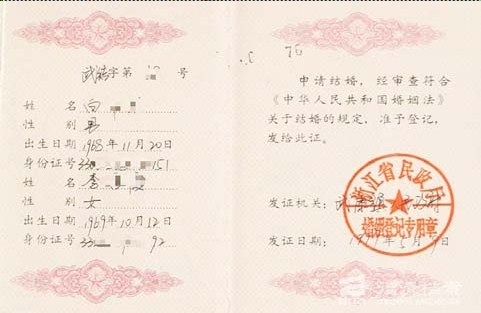 字第 号
姓 名 白
性 别 男
出生日期 1968年11月20日
身份证号 33 151
姓 名 李
性 别 女
出生日期 1969年10月12日
身份证号 33 92
申请结婚，经审查符合
《中华人民共和国婚姻法》
关于结婚的规定，准予登记，
发给此证。
浙江省民政厅
婚姻登记专用章
发证机关：
发证日期： 年5月 日